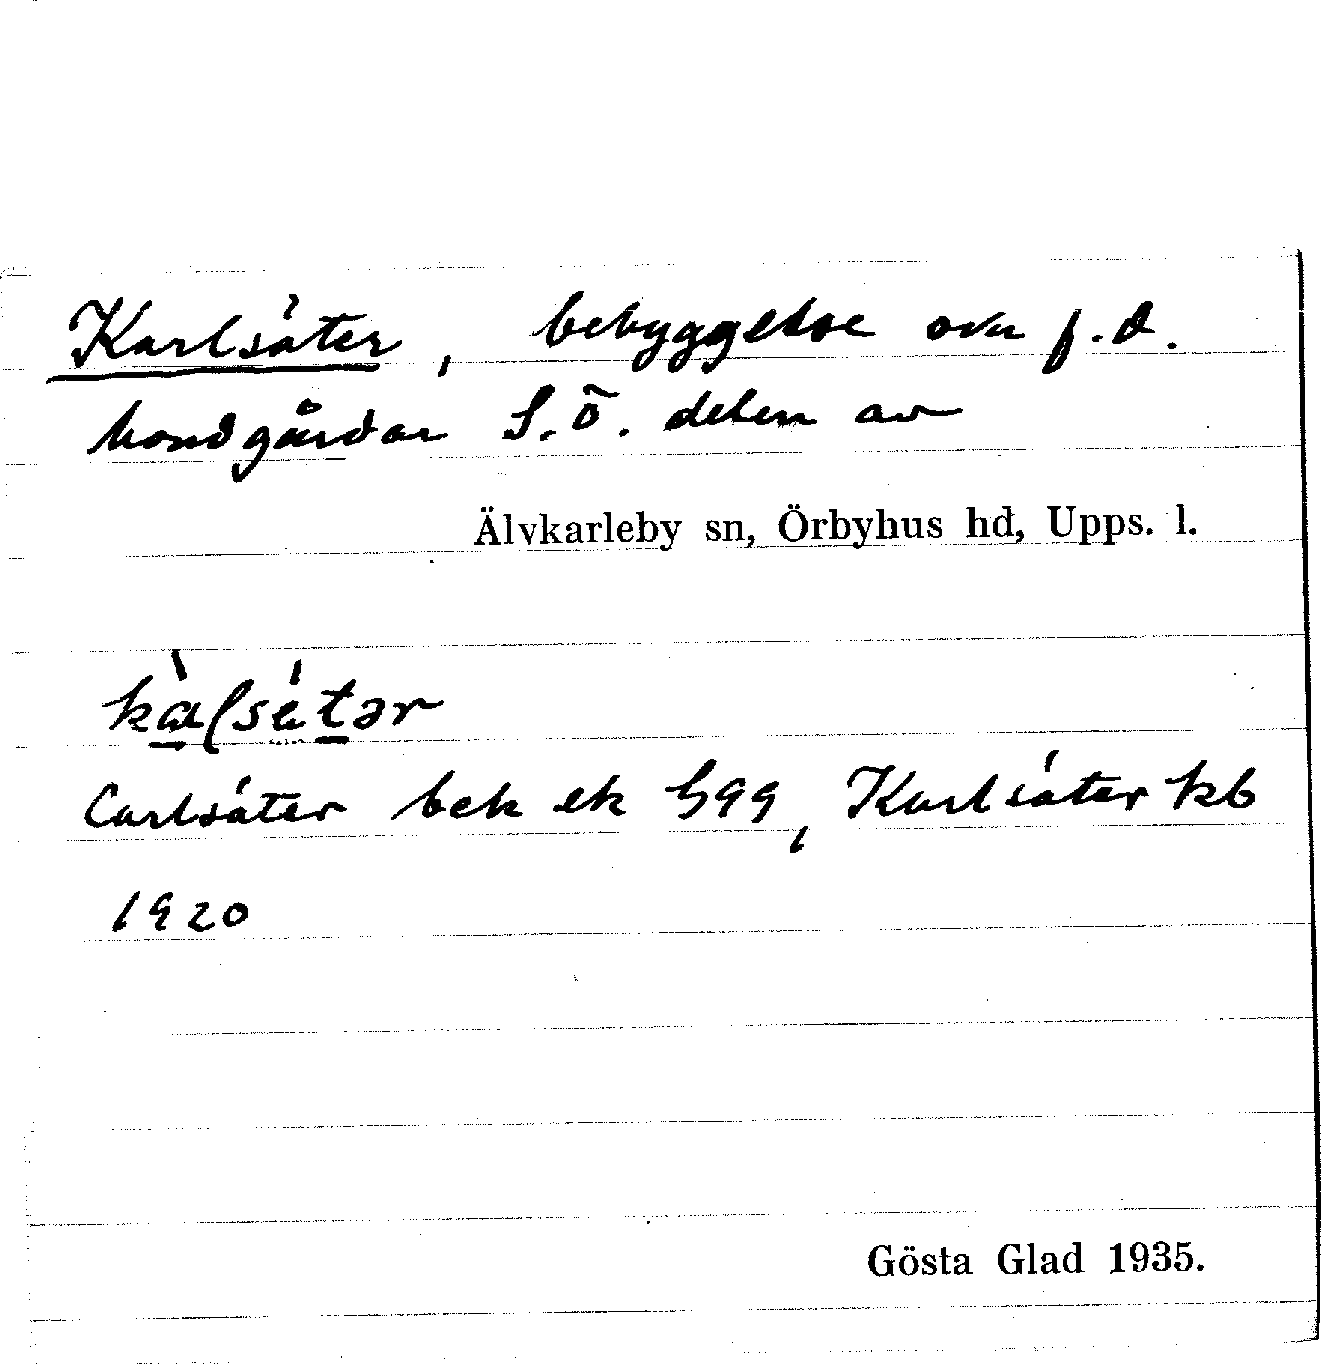 Karlsäter, bebyggelse över f.d.
bondgårdar S.Ö. delen av
Älvkarleby sn, Örbyhus hd, Upps. l.
Carlsäter bek ek 599, Karlsäter kb
1920
Gösta Glad 1935.